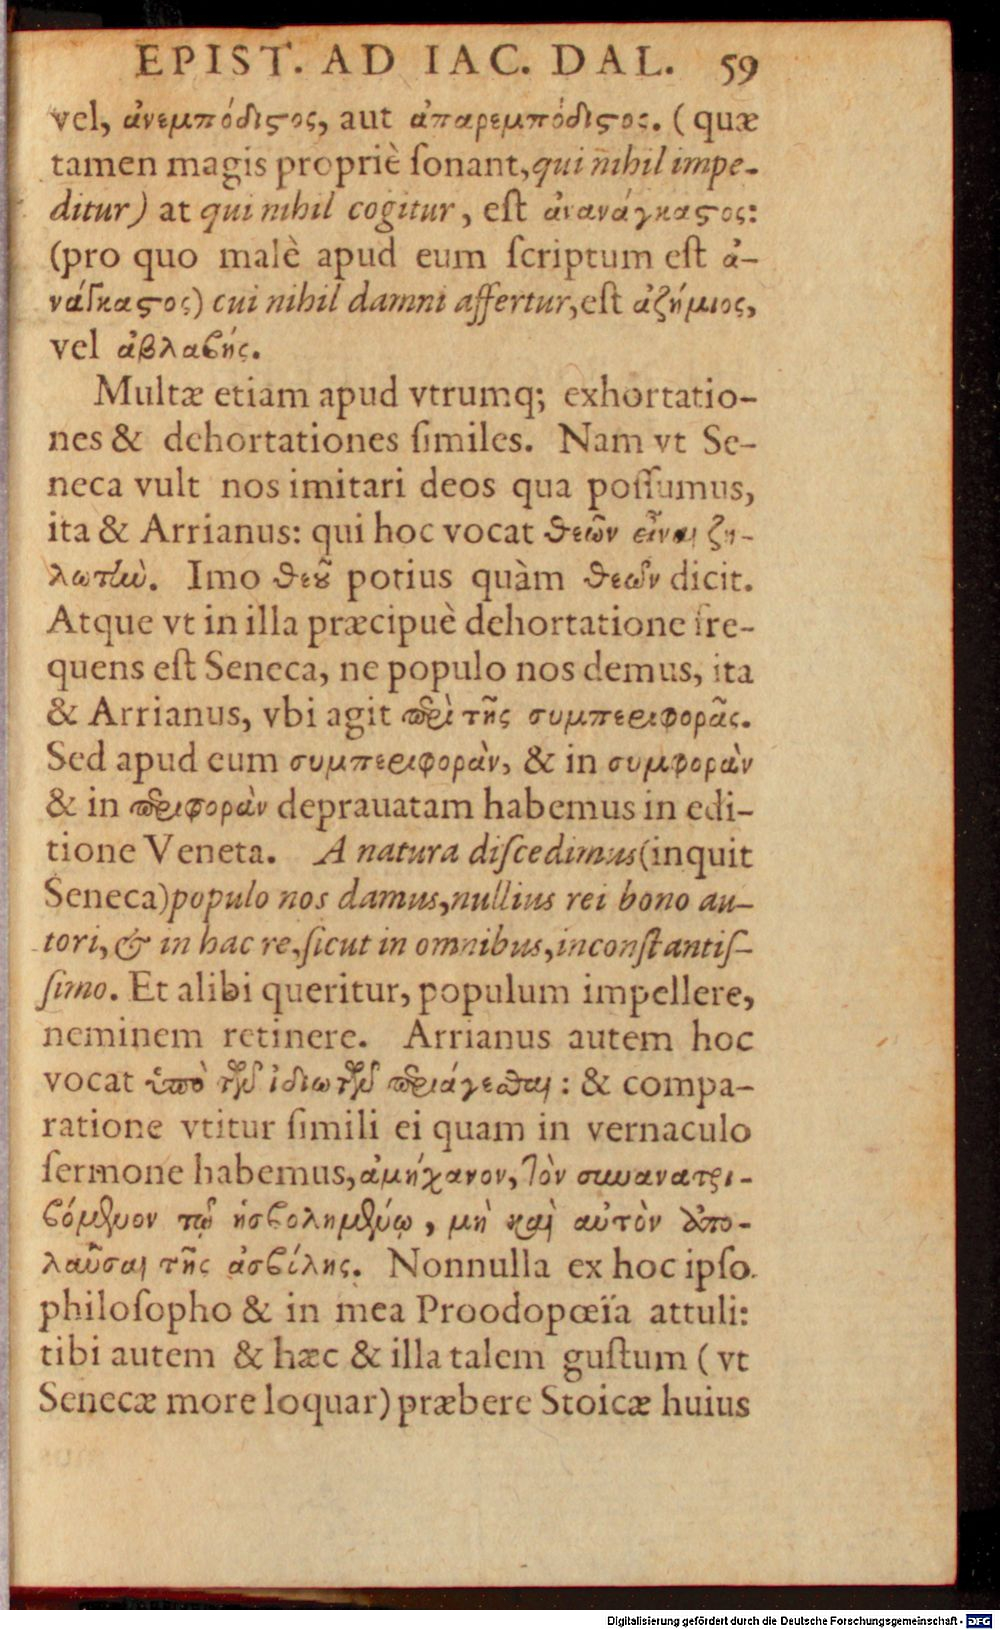 EPIST. AD IAC. DAL. 59
vel, ἀνεμπόδιϛος, aut ἀπαρεμπόδιϛος. (quæ
tamen magis propriè ſonant, qui nihil impe-
ditur) at qui nihil cogitur, eſt ἀνανάγκαϛος:
(pro quo malè apud eum ſcriptum eſt ἀ-
νάγκαϛος) cui nihil damni affertur, eſt ἀζήμιος,
vel ἀβλαβής.
Multæ etiam apud vtrumq; exhortatio-
nes & dehortationes ſimiles. Nam vt Se-
neca vult nos imitari deos qua poſſumus,
ita & Arrianus: qui hoc vocat θεῶν εἶναι ζη-
λωτὴν. Imo θεοῦ potius quàm θεῶν dicit.
Atque vt in illa præcipuè dehortatione fre-
quens eſt Seneca, ne populo nos demus, ita
& Arrianus, vbi agit περὶ τῆς συμπεριφορᾶς.
Sed apud eum συμπεριφορὰν, & in συμφορὰν
& in περιφορὰν deprauatam habemus in edi-
tione Veneta. A natura diſcedimus (inquit
Seneca) populo nos damus, nullius rei bono au-
tori, & in hac re, ſicut in omnibus, inconſtantiſ-
ſimo. Et alibi queritur, populum impellere,
neminem retinere. Arrianus autem hoc
vocat ὑπὸ τῶν ἰδιωτῶν περιάγεσθαι: & compa-
ratione vtitur ſimili ei quam in vernaculo
ſermone habemus, ἀμήχανον, τὸν συνανατρι-
βόμενον τῷ ἠσβολημένῳ, μὴ καὶ αὐτὸν ἀπο-
λαῦσαι τῆς ἀσβόλης. Nonnulla ex hoc ipſo
philoſopho & in mea Proodopœïa attuli:
tibi autem & hæc & illa talem guſtum (vt
Senecæ more loquar) præbere Stoicæ huius
Digitalisierung gefördert durch die Deutsche Forschungsgemeinschaft - DFG